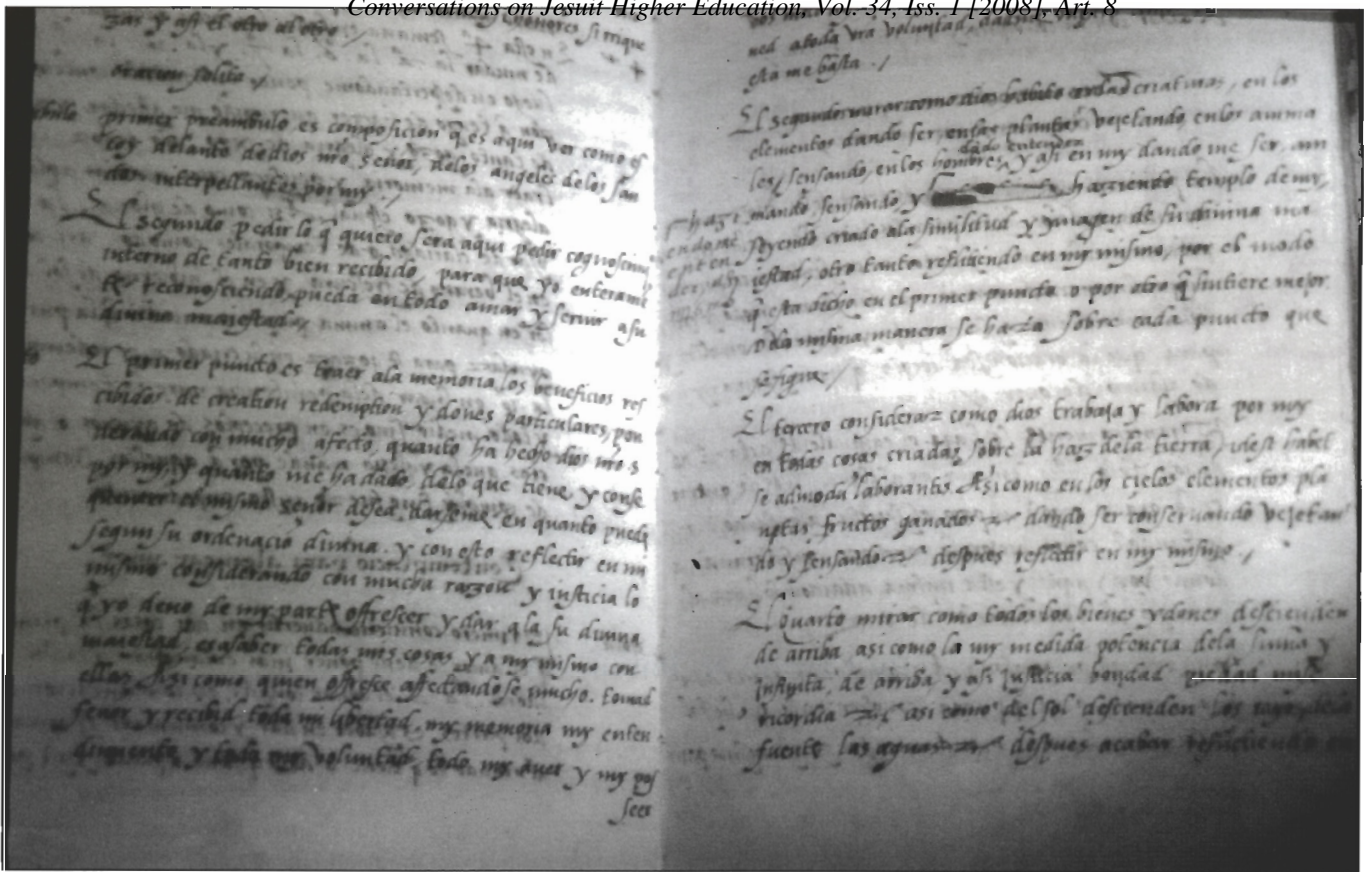 Conversations on Jesuit Higher Education, Vol. 34, Iss. 1 [2008], Art. 8
zas y assi el otro al otro /
oracion solita /
primer preambulo es composicion q̃ es aqui ver como es
toy delante de dios nro señor, delos angeles delos san
dos interpellantes por my /
El segundo pedir lo q̃ quiero, sera aqui pedir cognoscim
interno de tanto bien recibido, para que yo enterame
te reconosciendo pueda en todo amar y servir a su
divina maiestad /
El primer puncto es traer ala memoria los beneficios res
cibidos de creation redemption y dones particulares, pon
derando con mucho afecto, quanto ha hecho dios nro s
por my, y quanto me ha dado delo que tiene, y conse
quenter el mismo señor desea darseme en quanto puede
segun su ordenacio divina. y con esto reflectir en mi
mismo considerando con mucha razon y iusticia lo
q̃ yo devo de my parte offrescer y dar ala su divina
maiestad, es asaber todas mis cosas y a my mismo con
ellas Asi como quien offresce affectandose mucho. tomad
señor y recibid toda mi libertad, my memoria my enten
dimiento y toda my voluntad, todo my aver y my pos
seer
ned atoda vra voluntad,
esta me basta. /
El segundo mirar como dios habita criaturas, en los
elementos dando ser, enlas plantas vejetando, enlos anima
les sensando, en los hombres dado entender y asi en my dando me ser, ani
mando, sensando, y haziendo templo de my,
seyendo criado ala similitud y ymagen de su divina ma
iestad, otro tanto reflitiendo en my mismo, por el modo
q̃ esta dicho en el primer puncto o por otro q̃ sintiere mejor
dela misma manera se hara sobre cada puncto que
se sigue /
El tercero considerar como dios trabaja y labora por my
en todas cosas criadas sobre la haz dela tierra, idest habet
se admodũ laborantis Asi como en los cielos elementos pla
ntas fructos ganados dando ser conservando vejetan
do y sensando despues reflectir en my mismo /
El quarto mirar como todos los bienes y dones descienden
de arriba asi como la my medida potencia dela summa y
infinita, de arriba y asi justicia bondad piedad mise
ricordia asi como del sol descienden los rayos, dela
fuente las aguas despues acabar reflictiendo en